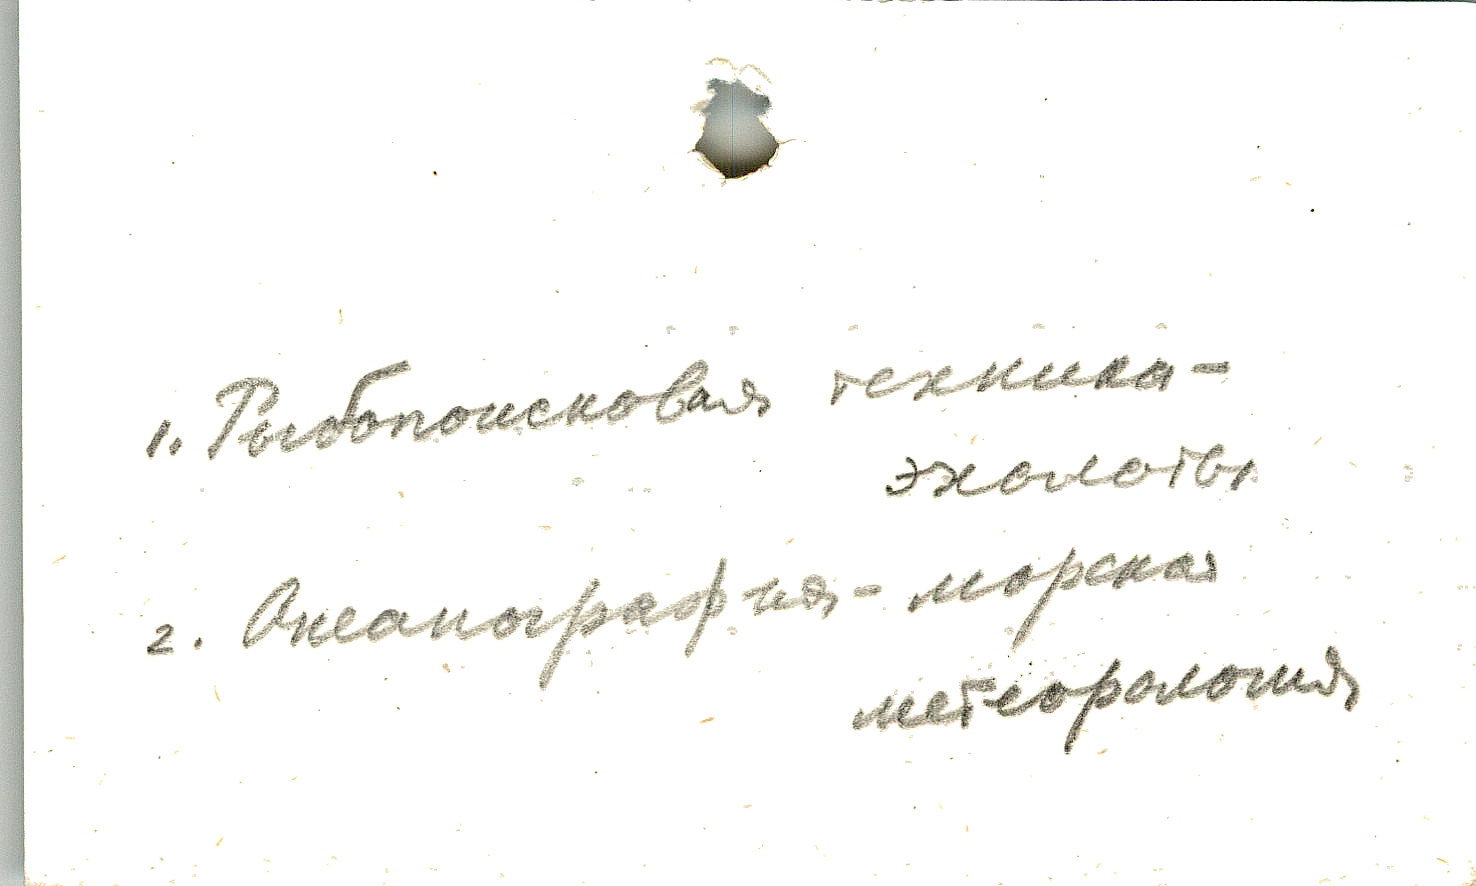 1. Рыбопоисковая техника-
эхолоты
2. Океанография - морская
метеорология